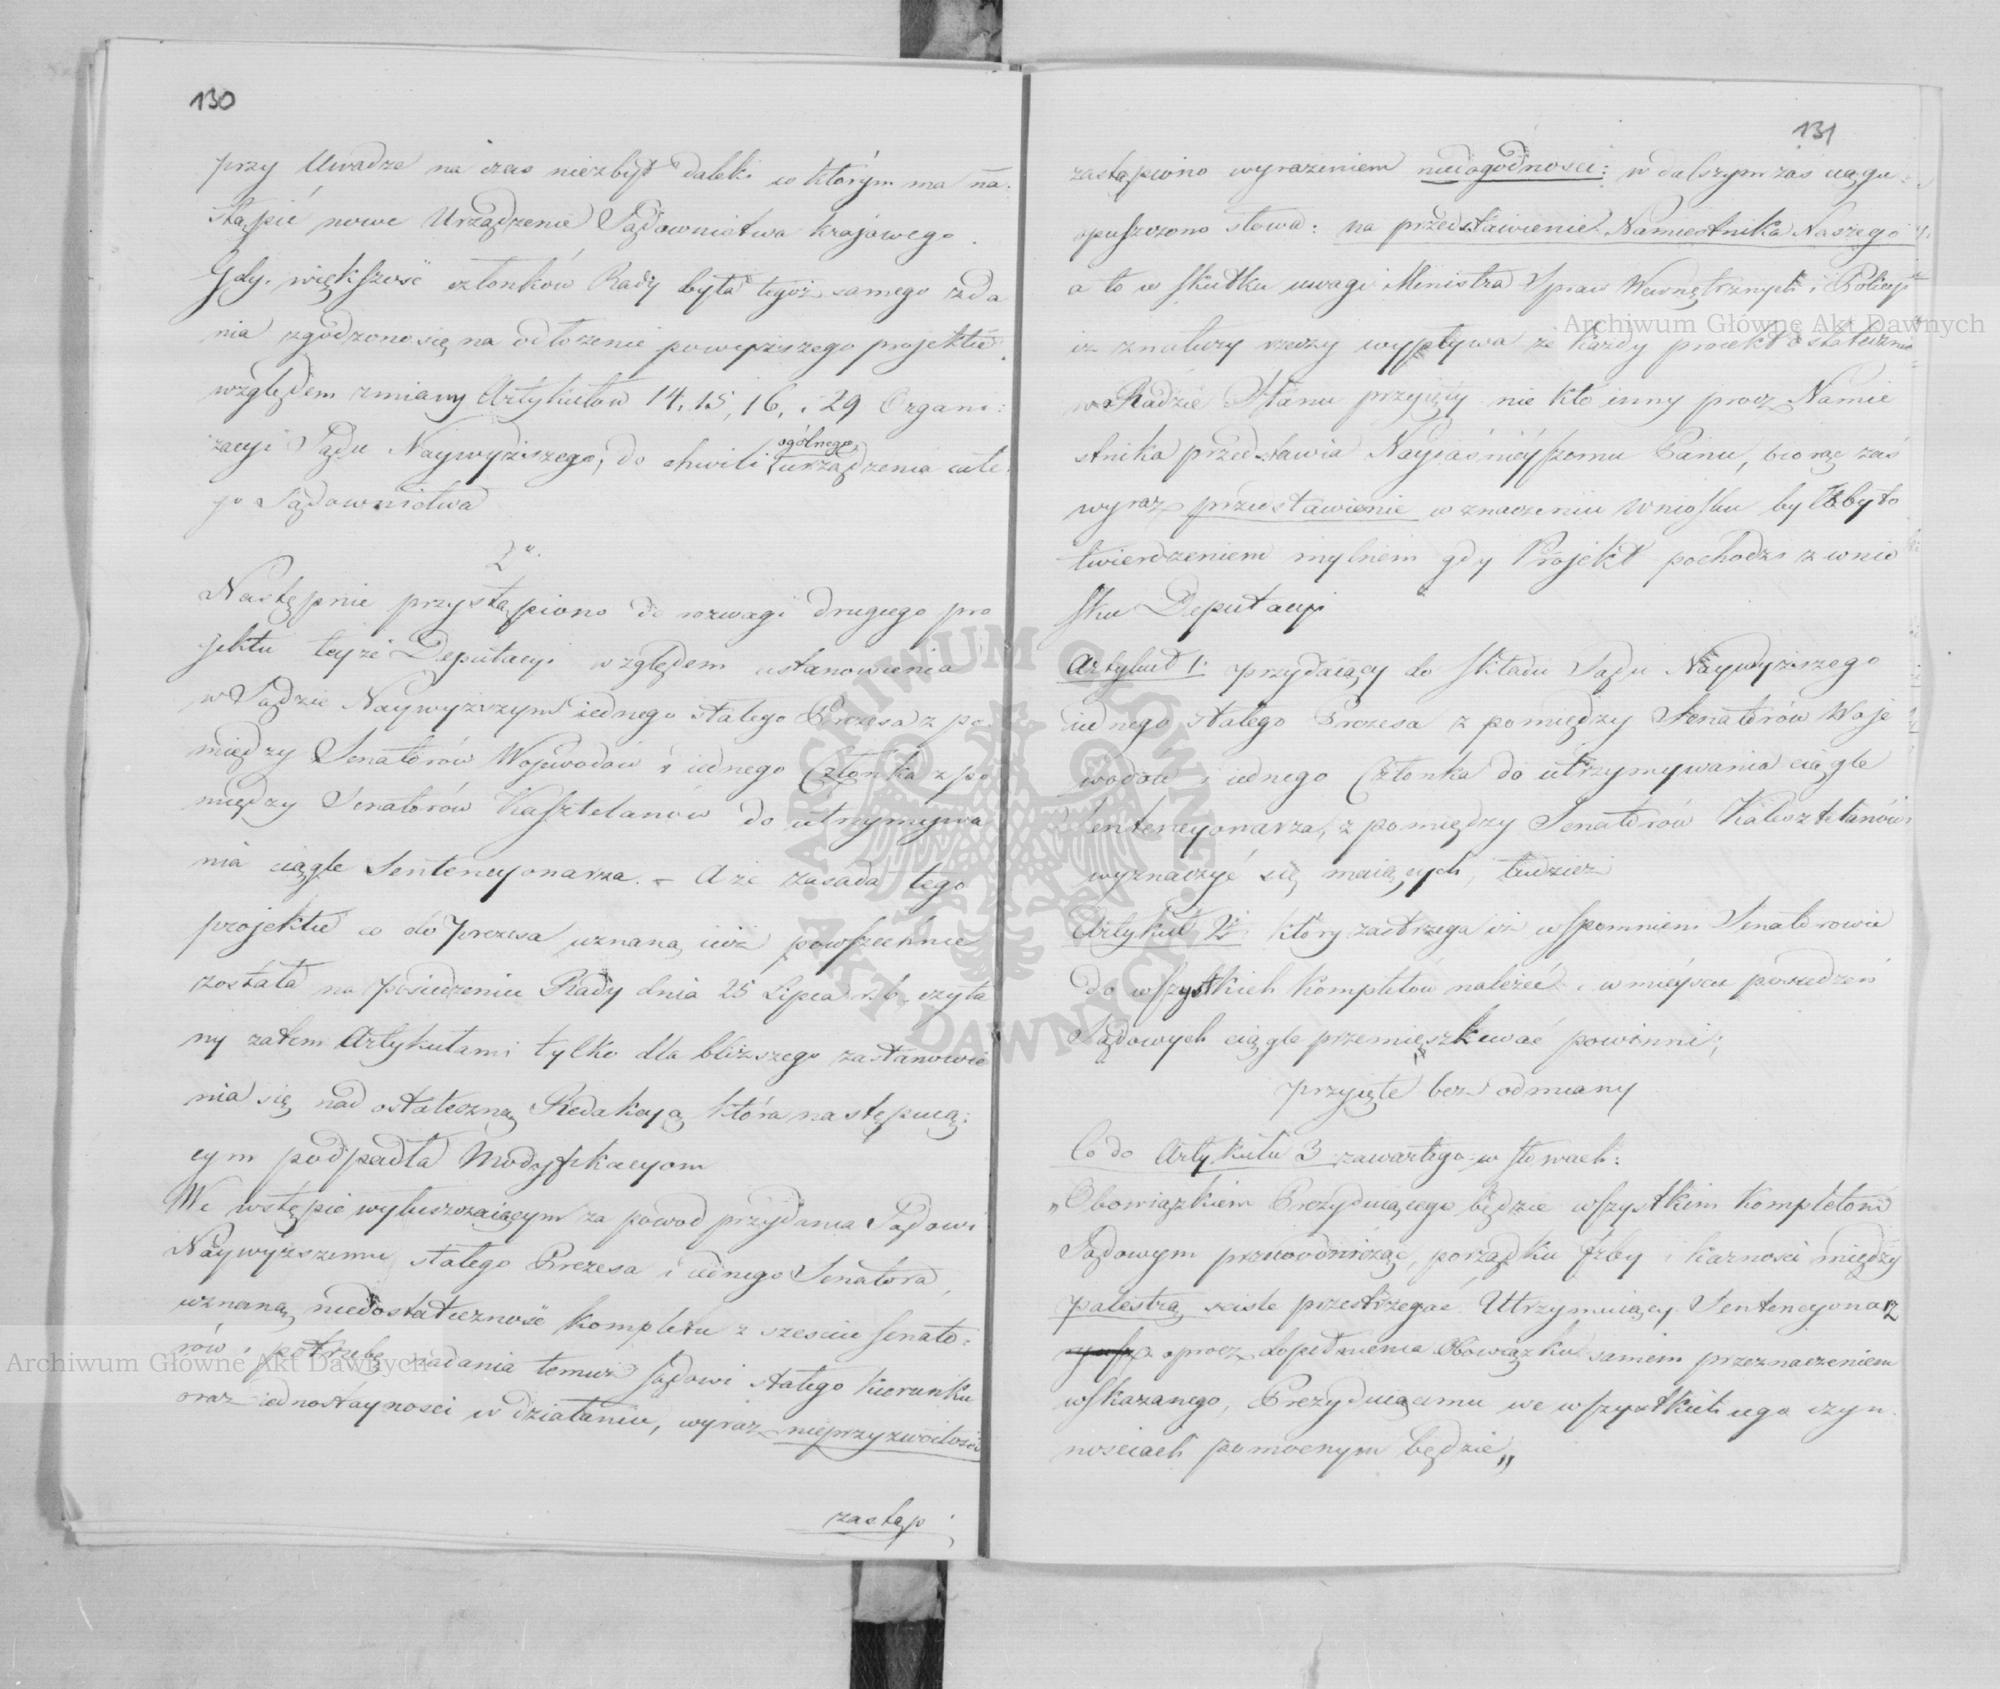 130
przy Uwadze na czas niezbyt daleki w którym ma na:
stąpić nowe Urządzenie Sądownictwa krajowego.
Gdy większość członków Rady była tegoż samego zda
nia zgodzono się na odłożenie powyższego projektu
względem zmiany Artykułów 14, 15, 16, i 29 Organi:
zacyi Sądu Naywyższego, do chwili ogólnego urządzenia całe
go Sądownictwa
2°.
Następnie przystąpiono do rozwagi drugiego pro
jektu teyże Deputacyi względem ustanowienia
w Sądzie Naywyższym iednego stałego Prezesa z po
między Senatorów Wojewodów i iednego Członka z po
między Senatorów Kasztelanów do utrzymywa
nia ciągle Sentencyonarza. – A że zasada tego
projektu co do Prezesa uznaną iuż powszechnie
została na posiedzeniu Rady dnia 25 Lipca r. b. czyta
ny zatem Artykułami tylko dla bliższego zastanowie
nia się nad ostateczną Redakcyą która następuią:
cym podpadła Modyfikacyom
We wstępie wyłuszczaiącym za powod przydania Sądowi
Naywyższemu stałego Prezesa i iednego Senatora,
uznaną niedostateczność kompletu z sześciu Senato:
rów i potrzebę nadania temuż Sądowi stałego kierunku
oraz iednostayności w działaniu, wyraz nieprzyzwoitości
zastąp
131
zastąpiono wyrażeniem niedogodności: w dalszym zaś ciągu
opuszczono słowa: na przedstawienie Namiestnika Naszego
a to w skutku uwagi Ministra Spraw Wewnętrznych i Policyi
iż z natury rzeczy wypływa że każdy proiekt ostatecznie
w Radzie Stanu przyięty nie kto inny procz Namie
stnika przedstawia Nayiaśnieyszemu Panu, biorąc zaś
wyraz przedstawienie w znaczeniu wniosku byłoby to
twierdzeniem mylnem gdy Projekt pochodzi z wnio
sku Deputacyi
Artykuł 1. przydaiący do składu Sądu Naywyższego
iednego stałego Prezesa z pomiędzy Senatorów Woje
wodów i iednego Członka do utrzymywania ciągle
Sentencyonarza, z pomiędzy Senatorów Kasztelanów
wyznaczyć się maiących, tudzież
Artykuł 2. który zastrzega iż wspomnieni Senatorowie
do wszystkich kompletów należeć i w mieyscu posiedzeń
Sądowych ciągle przemieszkiwać powinni;
przyięte bez odmiany
Co do Artykułu 3 zawartego w słowach:
„Obowiązkiem Prezyduiącego będzie wszystkim kompletom
Sądowym przewodniczyć, porządku Izby i karności między
palestrą ściśle przestrzegać. Utrzymuiący Sentencyonarz
oprocz dopełnienia Obowiązku samem przeznaczeniem
wskazanego, Prezyduiącemu we wszystkich iego czyn
nościach pomocnym będzie„